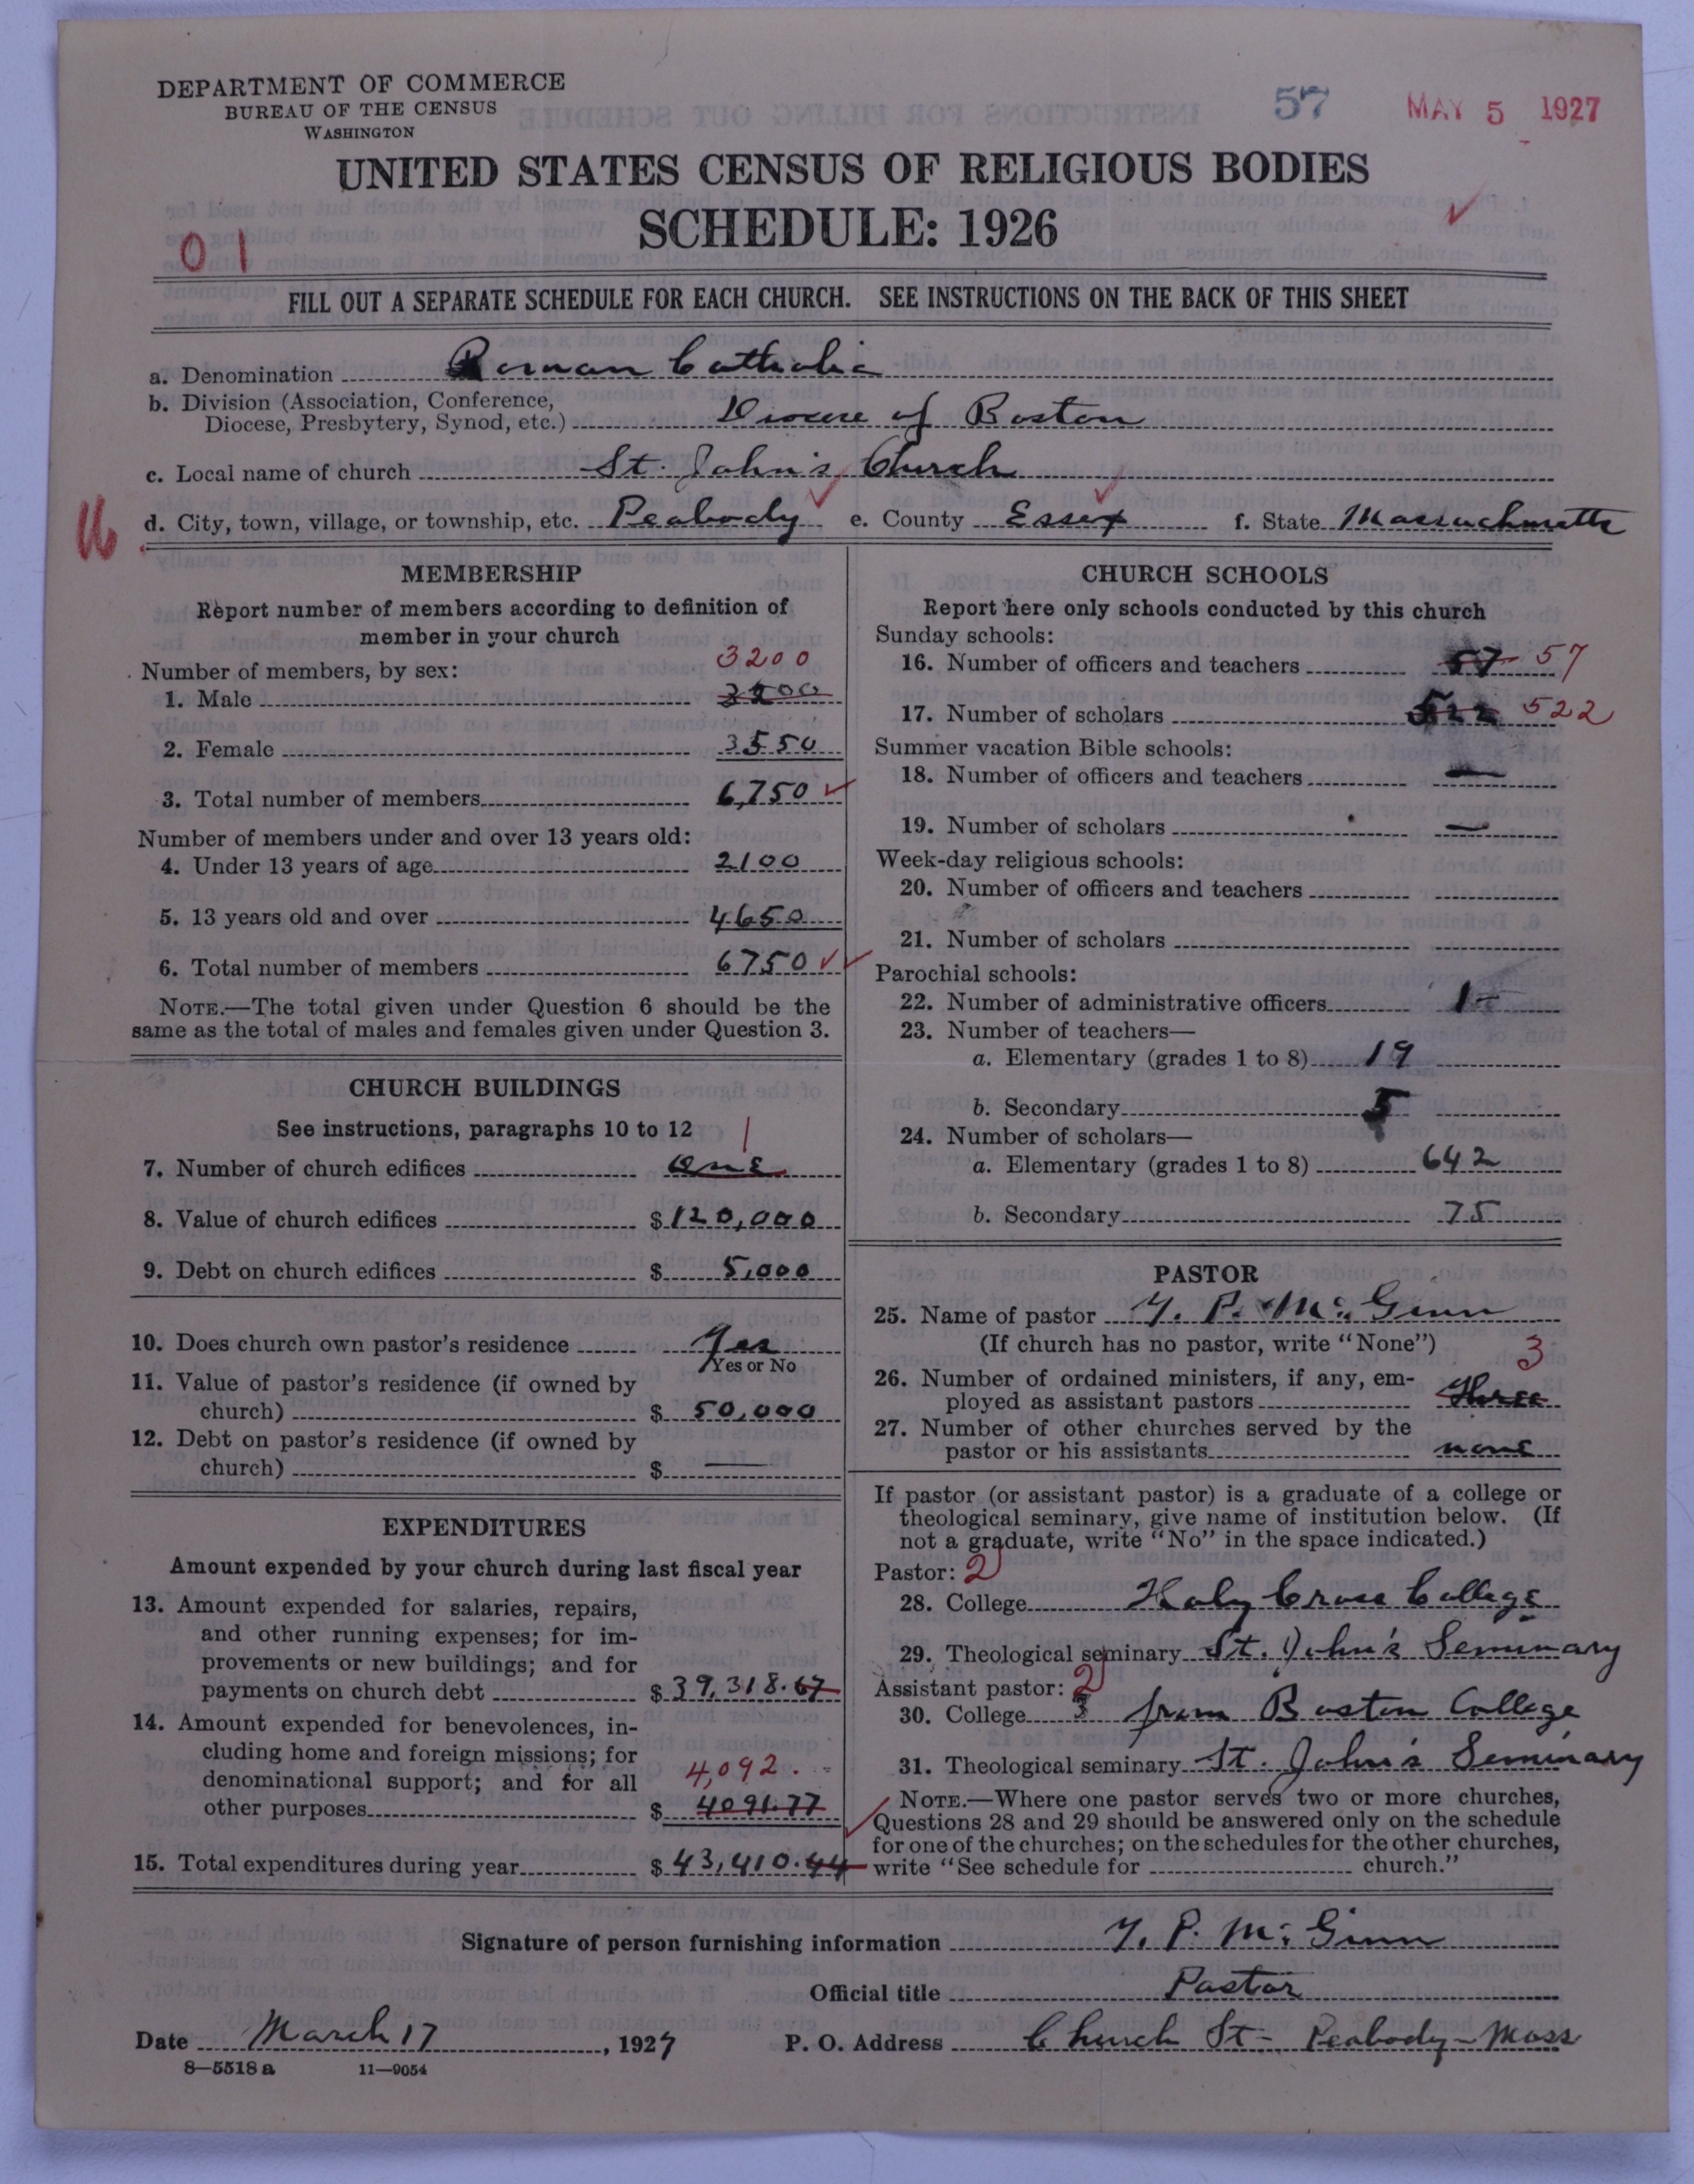 DEPARTMENT OF COMMERCE
BUREAU OF THE CENSUS
WASHINGTON
57 MAY 5 1927
UNITED STATES CENSUS OF RELIGIOUS BODIES
SCHEDULE: 1926
01
FILL OUT A SEPARATE SCHEDULE FOR EACH CHURCH. SEE INSTRUCTIONS ON THE BACK OF THIS SHEET
a. Denomination Roman Catholic
b. Division (Association, Conference,
Diocese, Presbytery, Synod, etc.) Diocese of Boston
c. Local name of church St. John's Church
d. City, town, village, or township, etc. Peabody e. County Essex f. State Massachusetts
MEMBERSHIP
Report number of members according to definition of
member in your church
Number of members, by sex:
3200
1. Male 3200
2. Female 3550
3. Total number of members 6,750
Number of members under and over 13 years old:
4. Under 13 years of age 2100
5. 13 years old and over 4650
6. Total number of members 6750
NOTE.—The total given under Question 6 should be the
same as the total of males and females given under Question 3.
CHURCH BUILDINGS
See instructions, paragraphs 10 to 12
1
7. Number of church edifices One
8. Value of church edifices $120,000
9. Debt on church edifices $ 5,000
10. Does church own pastor's residence Yes
Yes or No
11. Value of pastor's residence (if owned by
church) $ 50,000
12. Debt on pastor's residence (if owned by
church) $ —
EXPENDITURES
Amount expended by your church during last fiscal year
13. Amount expended for salaries, repairs,
and other running expenses; for im-
provements or new buildings; and for
payments on church debt $39,318.67
14. Amount expended for benevolences, in-
cluding home and foreign missions; for
denominational support; and for all
4,092.
other purposes $ 4091.77
15. Total expenditures during year $43,410.44
CHURCH SCHOOLS
Report here only schools conducted by this church
Sunday schools:
16. Number of officers and teachers 57 57
17. Number of scholars 522 522
Summer vacation Bible schools:
18. Number of officers and teachers —
19. Number of scholars —
Week-day religious schools:
20. Number of officers and teachers
21. Number of scholars
Parochial schools:
22. Number of administrative officers 1
23. Number of teachers—
a. Elementary (grades 1 to 8) 19
b. Secondary 5
24. Number of scholars—
a. Elementary (grades 1 to 8) 642
b. Secondary 75
PASTOR
25. Name of pastor Y. P. McGinn
(If church has no pastor, write "None")
3
26. Number of ordained ministers, if any, em-
ployed as assistant pastors Three
27. Number of other churches served by the
pastor or his assistants none
If pastor (or assistant pastor) is a graduate of a college or
theological seminary, give name of institution below. (If
not a graduate, write "No" in the space indicated.)
Pastor: 2
28. College Holy Cross College
29. Theological seminary St. John's Seminary
Assistant pastor: 2
30. College 3 from Boston College
31. Theological seminary St. John's Seminary
NOTE.—Where one pastor serves two or more churches,
Questions 28 and 29 should be answered only on the schedule
for one of the churches; on the schedules for the other churches,
write "See schedule for church."
Signature of person furnishing information Y. P. McGinn
Official title Pastor
Date March 17, 1927 P. O. Address Church St- Peabody-Mass
8—5518 a 11—9054